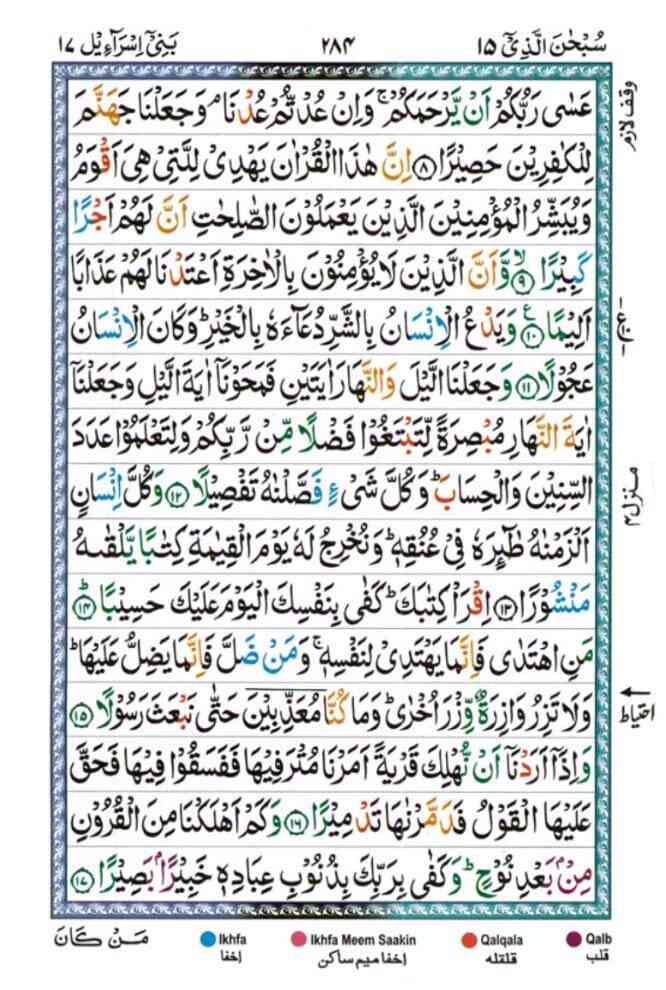 سُبْحٰنَ الَّذِیْۤ ۱۵ ۲۸۴ بَنِیْۤ اِسْرَآءِیْل ۱۷
عَسٰی رَبُّكُمْ اَنْ یَّرْحَمَكُمْ ۚ وَاِنْ عُدْتُّمْ عُدْنَا ۘ وَجَعَلْنَا جَهَنَّمَ
لِلْكٰفِرِیْنَ حَصِیْرًا ﴿۸﴾ اِنَّ هٰذَا الْقُرْاٰنَ یَهْدِیْ لِلَّتِیْ هِیَ اَقْوَمُ
وَیُبَشِّرُ الْمُؤْمِنِیْنَ الَّذِیْنَ یَعْمَلُوْنَ الصّٰلِحٰتِ اَنَّ لَهُمْ اَجْرًا
كَبِیْرًا ﴿۹﴾ ۙ وَّاَنَّ الَّذِیْنَ لَا یُؤْمِنُوْنَ بِالْاٰخِرَةِ اَعْتَدْنَا لَهُمْ عَذَابًا
اَلِیْمًا ﴿۱۰﴾ ع وَیَدْعُ الْاِنْسَانُ بِالشَّرِّ دُعَآءَهٗ بِالْخَیْرِ ؕ وَكَانَ الْاِنْسَانُ
عَجُوْلًا ﴿۱۱﴾ وَجَعَلْنَا الَّیْلَ وَالنَّهَارَ اٰیَتَیْنِ فَمَحَوْنَاۤ اٰیَةَ الَّیْلِ وَجَعَلْنَاۤ
اٰیَةَ النَّهَارِ مُبْصِرَةً لِّتَبْتَغُوْا فَضْلًا مِّنْ رَّبِّكُمْ وَلِتَعْلَمُوْا عَدَدَ
السِّنِیْنَ وَالْحِسَابَ ؕ وَكُلَّ شَیْءٍ فَصَّلْنٰهُ تَفْصِیْلًا ﴿۱۲﴾ وَكُلَّ اِنْسَانٍ
اَلْزَمْنٰهُ طٰٓئِرَهٗ فِیْ عُنُقِهٖ ؕ وَنُخْرِجُ لَهٗ یَوْمَ الْقِیٰمَةِ كِتٰبًا یَّلْقٰىهُ
مَنْشُوْرًا ﴿۱۳﴾ اِقْرَاْ كِتٰبَكَ ؕ كَفٰی بِنَفْسِكَ الْیَوْمَ عَلَیْكَ حَسِیْبًا ﴿۱۴﴾ ؕ
مَنِ اهْتَدٰی فَاِنَّمَا یَهْتَدِیْ لِنَفْسِهٖ ۚ وَمَنْ ضَلَّ فَاِنَّمَا یَضِلُّ عَلَیْهَا ؕ
وَلَا تَزِرُ وَازِرَةٌ وِّزْرَ اُخْرٰی ؕ وَمَا كُنَّا مُعَذِّبِیْنَ حَتّٰی نَبْعَثَ رَسُوْلًا ﴿۱۵﴾
وَاِذَاۤ اَرَدْنَاۤ اَنْ نُّهْلِكَ قَرْیَةً اَمَرْنَا مُتْرَفِیْهَا فَفَسَقُوْا فِیْهَا فَحَقَّ
عَلَیْهَا الْقَوْلُ فَدَمَّرْنٰهَا تَدْمِیْرًا ﴿۱۶﴾ وَكَمْ اَهْلَكْنَا مِنَ الْقُرُوْنِ
مِنْۢ بَعْدِ نُوْحٍ ؕ وَكَفٰی بِرَبِّكَ بِذُنُوْبِ عِبَادِهٖ خَبِیْرًۢا بَصِیْرًا ﴿۱۷﴾
وقف لازم
ع
منزل ۴
احتیاط
مَنْ كَانَ
Ikhfa اخفا
Ikhfa Meem Saakin اخفا میم ساکن
Qalqala قلقله
Qalb قلب